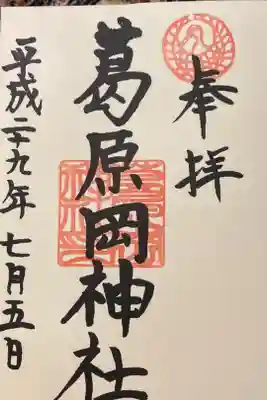 奉拝
葛原岡神社
平成二十九年七月五日